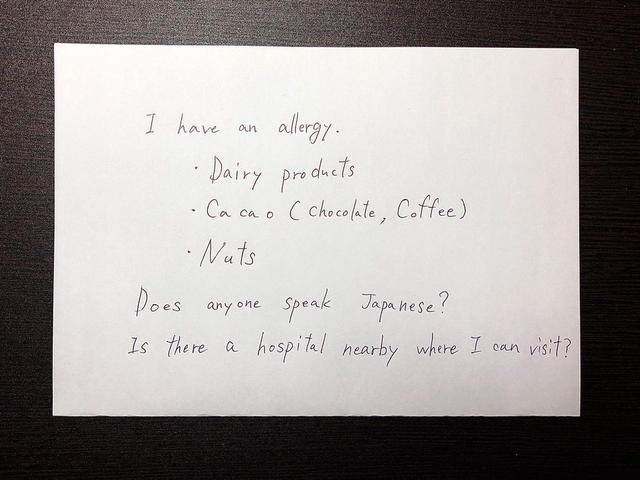 I have an allergy.
・Dairy products
・Cacao (chocolate, Coffee)
・Nuts
Does anyone speak Japanese?
Is there a hospital nearby where I can visit?